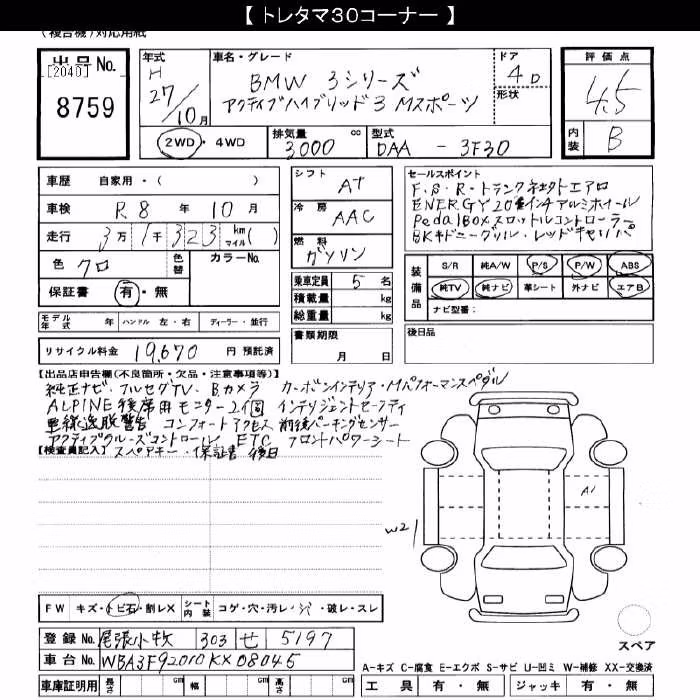 【 トレタマ30コーナー 】
(複合機)対応用紙
出品No.
[2040]
8759
年式 H 27/10月
車名・グレード
BMW 3シリーズ
アクティブハイブリッド3 Mスポーツ
ドア 4D
形状
評価点
4.5
内装 B
2WD・4WD
排気量 3000 cc
型式 DAA - 3F30
車歴 自家用・( )
車検 R8 年 10 月
走行 3万 1千 323 km マイル( )
色 クロ 色替 カラーNo.
保証書 有・無
シフト AT
冷房 AAC
燃料 ガソリン
乗車定員 5 名
積載量 kg
総重量 kg
書類期限
月 日
セールスポイント
F.S.R.トランクネクストエアロ
ENERGY20インチアルミホイール
PedalBOXスロットルコントローラー
BKキドニーグリル・レッドキャリパ
装備品
S/R 純A/W P/S P/W ABS
純TV 純ナビ 革シート 外ナビ エアB
ナビ型番:
後日品
モデル年式 年 ハンドル 左・右 ディーラー・並行
リサイクル料金 19,670 円 預託済
【出品店申告欄(不良箇所・欠品・注意事項等)】
純正ナビ・フルセグTV・Bカメラ カーボンインテリア・Mパフォーマンスペダル
ALPINE後席用モニター2個 インテリジェントセーフティ
車線逸脱警告 コンフォートアクセス 前後パーキングセンサー
アクティブクルーズコントロール ETC フロントパワーシート
【検査員記入】 スペアキー・保証書 後日
A1
W2
FW キズ・トビ石・割レX シート内装 コゲ・穴・汚レ・シワ・破レ・スレ
登録No. 尾張小牧 303 せ 5197
車台No. WBA3F92010KX08045
スペア
A-キズ C-腐食 E-エクボ S-サビ U-凹ミ W-補修 XX-交換済
車庫証明用 長さ cm 幅 cm 高さ cm
工具 有・無 ジャッキ 有・無